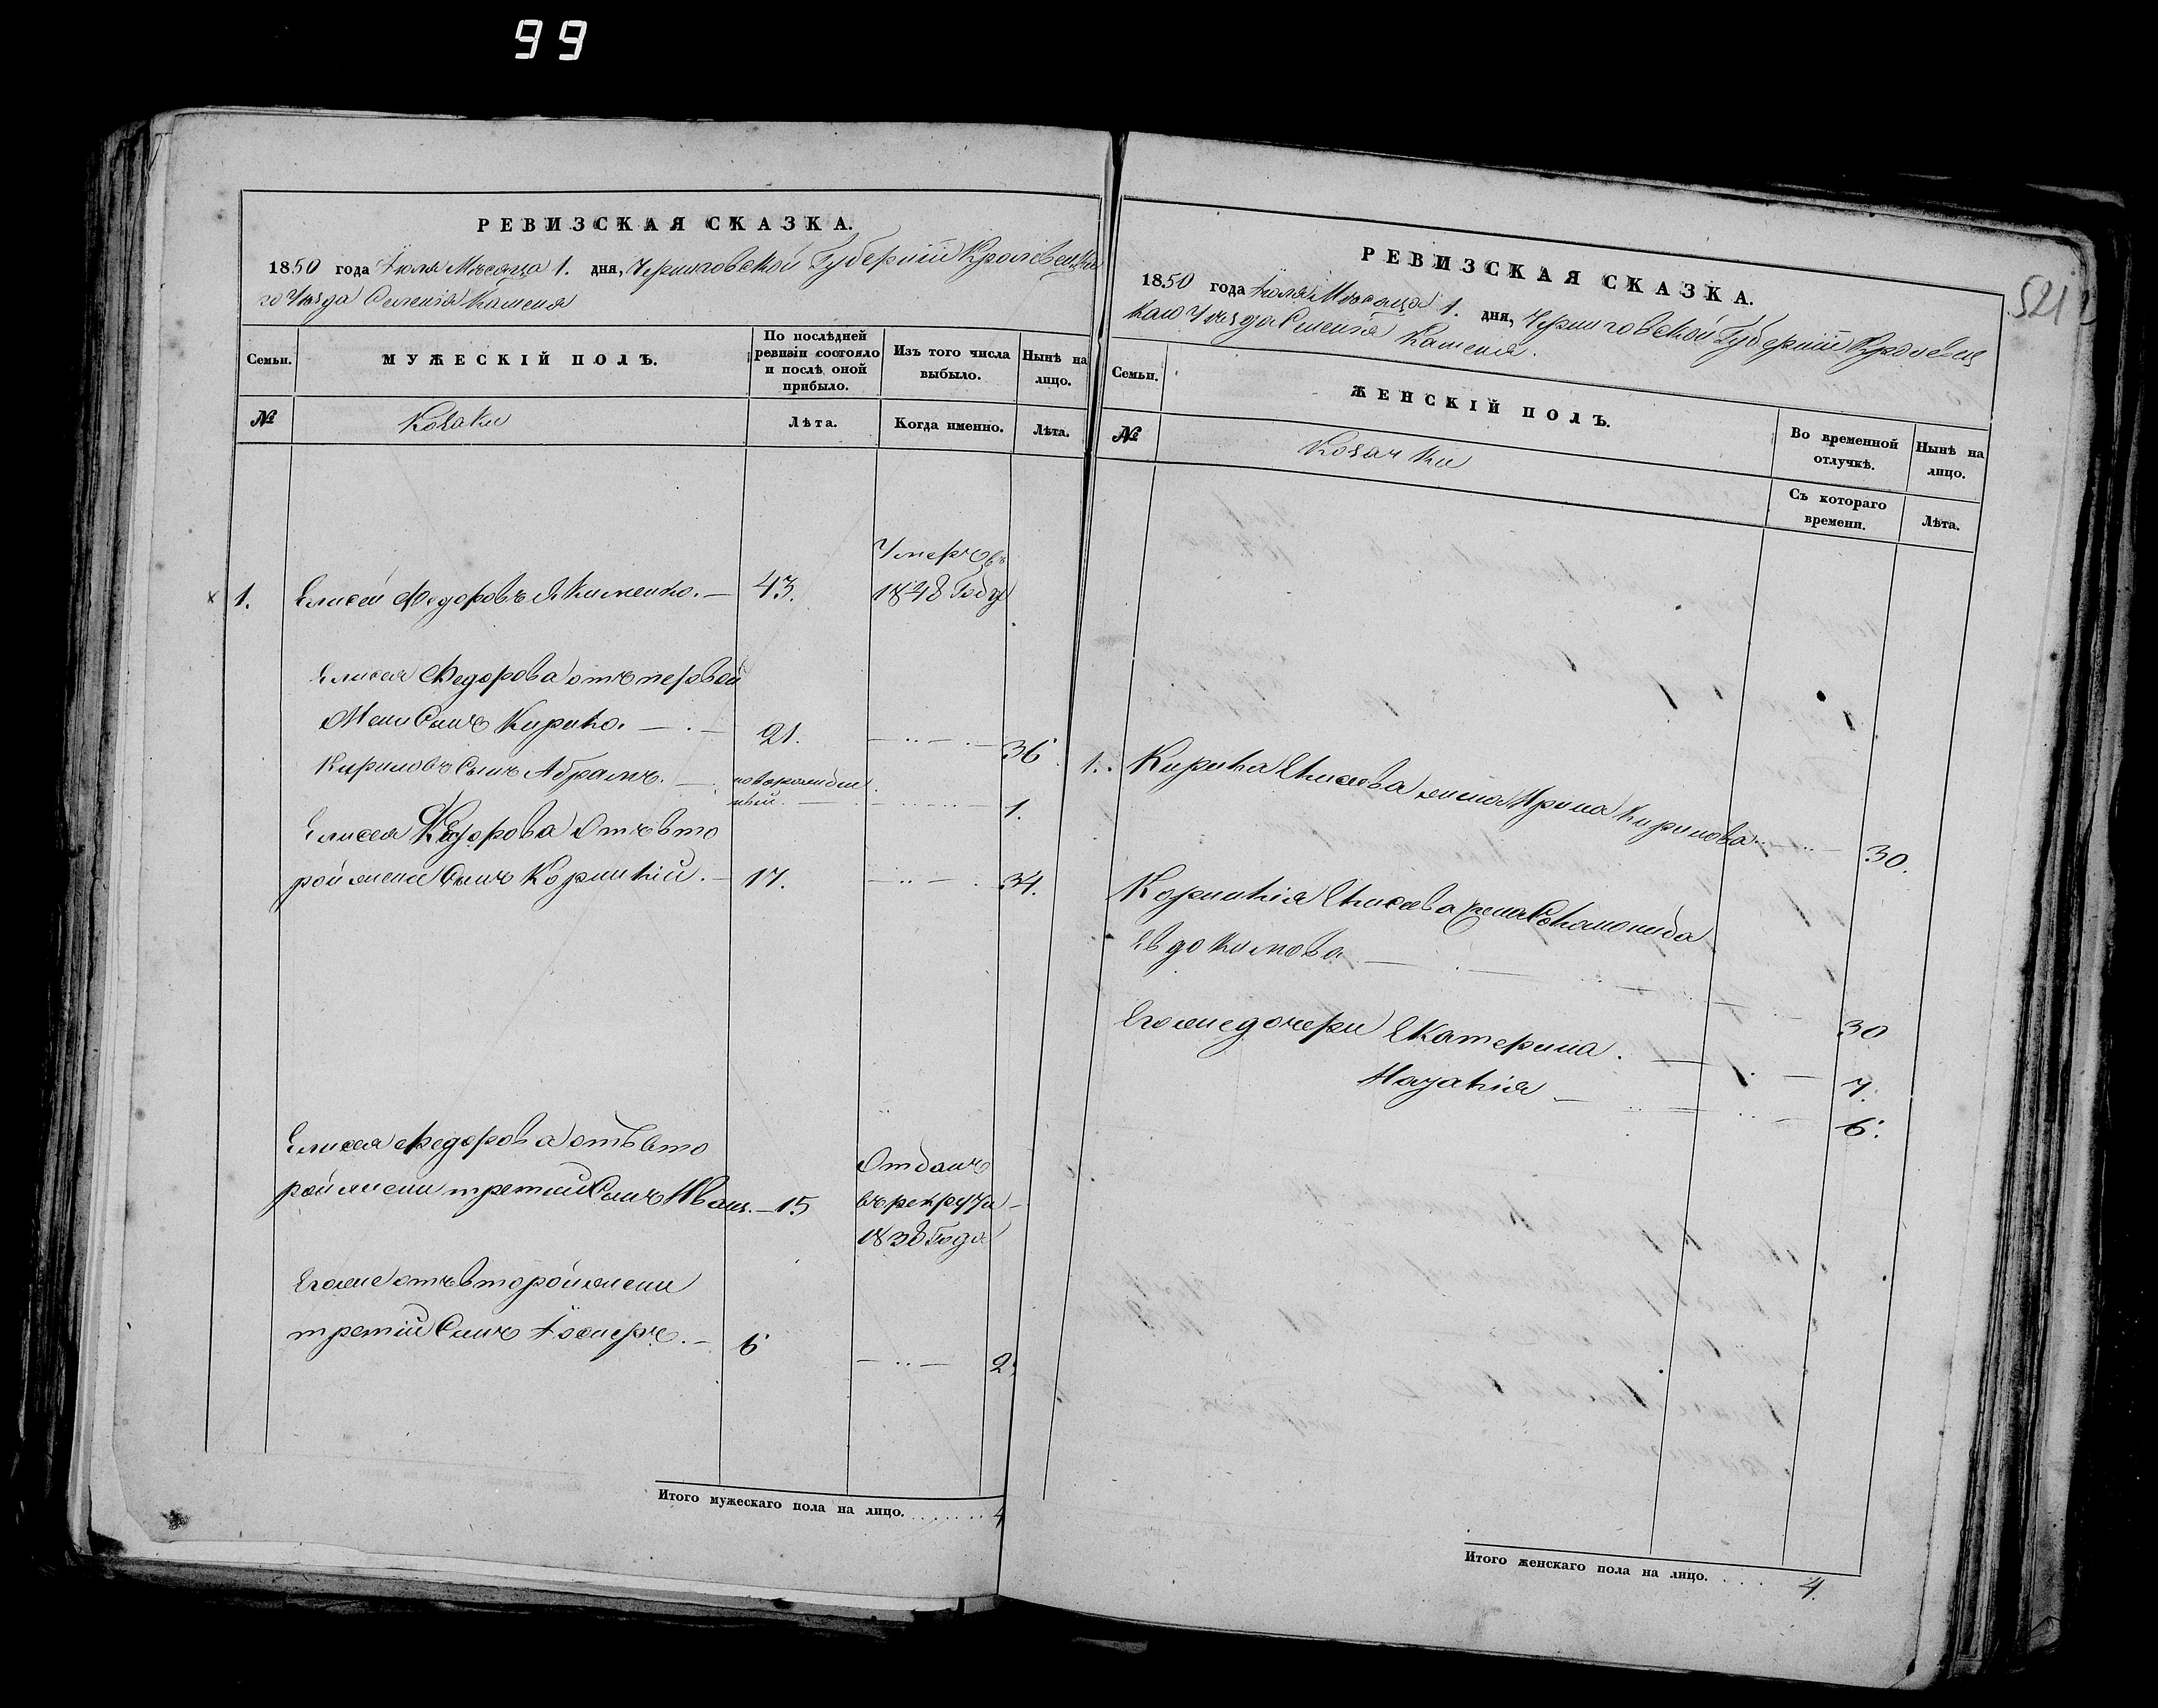 99
РЕВИЗСКАЯ СКАЗКА.
1850 года Іюля Мѣсяца 1. дня, Черниговской Губерніи Кролевецка
го Уѣзда Селенія Каменя
Семьи. МУЖЕСКІЙ ПОЛЪ. По послѣдней ревизіи состояло и послѣ оной прибыло. Изъ того числа выбыло. Нынѣ на лицо.
№ Козаки Лѣта. Когда именно. Лѣта.
Умеръ въ
1. Елисей Федоровъ Якименко. — 43. 1848 Году
Елисея Федорова отъ первой
жены Сынъ Кирико. — 21. 36
Кириловъ Сынъ Абрамъ. — новорожден
ный 1.
Елисея Федорова Отъ вто
рой жены Сынъ Корнилій. — 17. 34.
Елисея Федорова отъ вто
рой жены третій Сынъ Иванъ. — 15
Отданъ
въ рекруты
1838 Года
Егоже отъ второй жены
третій Сынъ — 6
Итого мужескаго пола на лицо. 4
РЕВИЗСКАЯ СКАЗКА.
521
1850 года Іюля Мѣсяца 1. дня, Черниговской Губерніи Кролевец
каго Уѣзда Селенія Каменя.
Семьи. ЖЕНСКІЙ ПОЛЪ. Во временной отлучкѣ. Нынѣ на лицо.
№ Козачки Съ котораго времени. Лѣта.
1. Кирика Елисеева жена Ирина Кирилова 30.
Корнилія Елисеева жена Соломонида
Евдокимова 30
Егоже дочери Екатерина. 7.
Наталія 6.
Итого женскаго пола на лицо. 4.